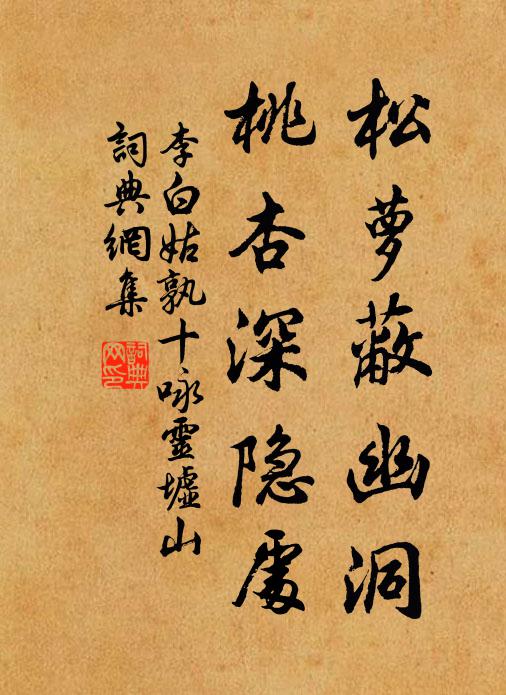 松萝蔽幽洞
桃杏深隐處
李白姑孰十咏靈墟山
詞典網集
詞典
网印